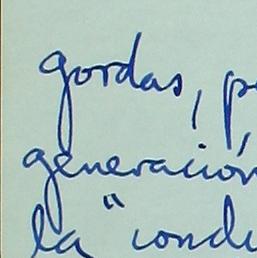 gordas, p
generación
la "condu